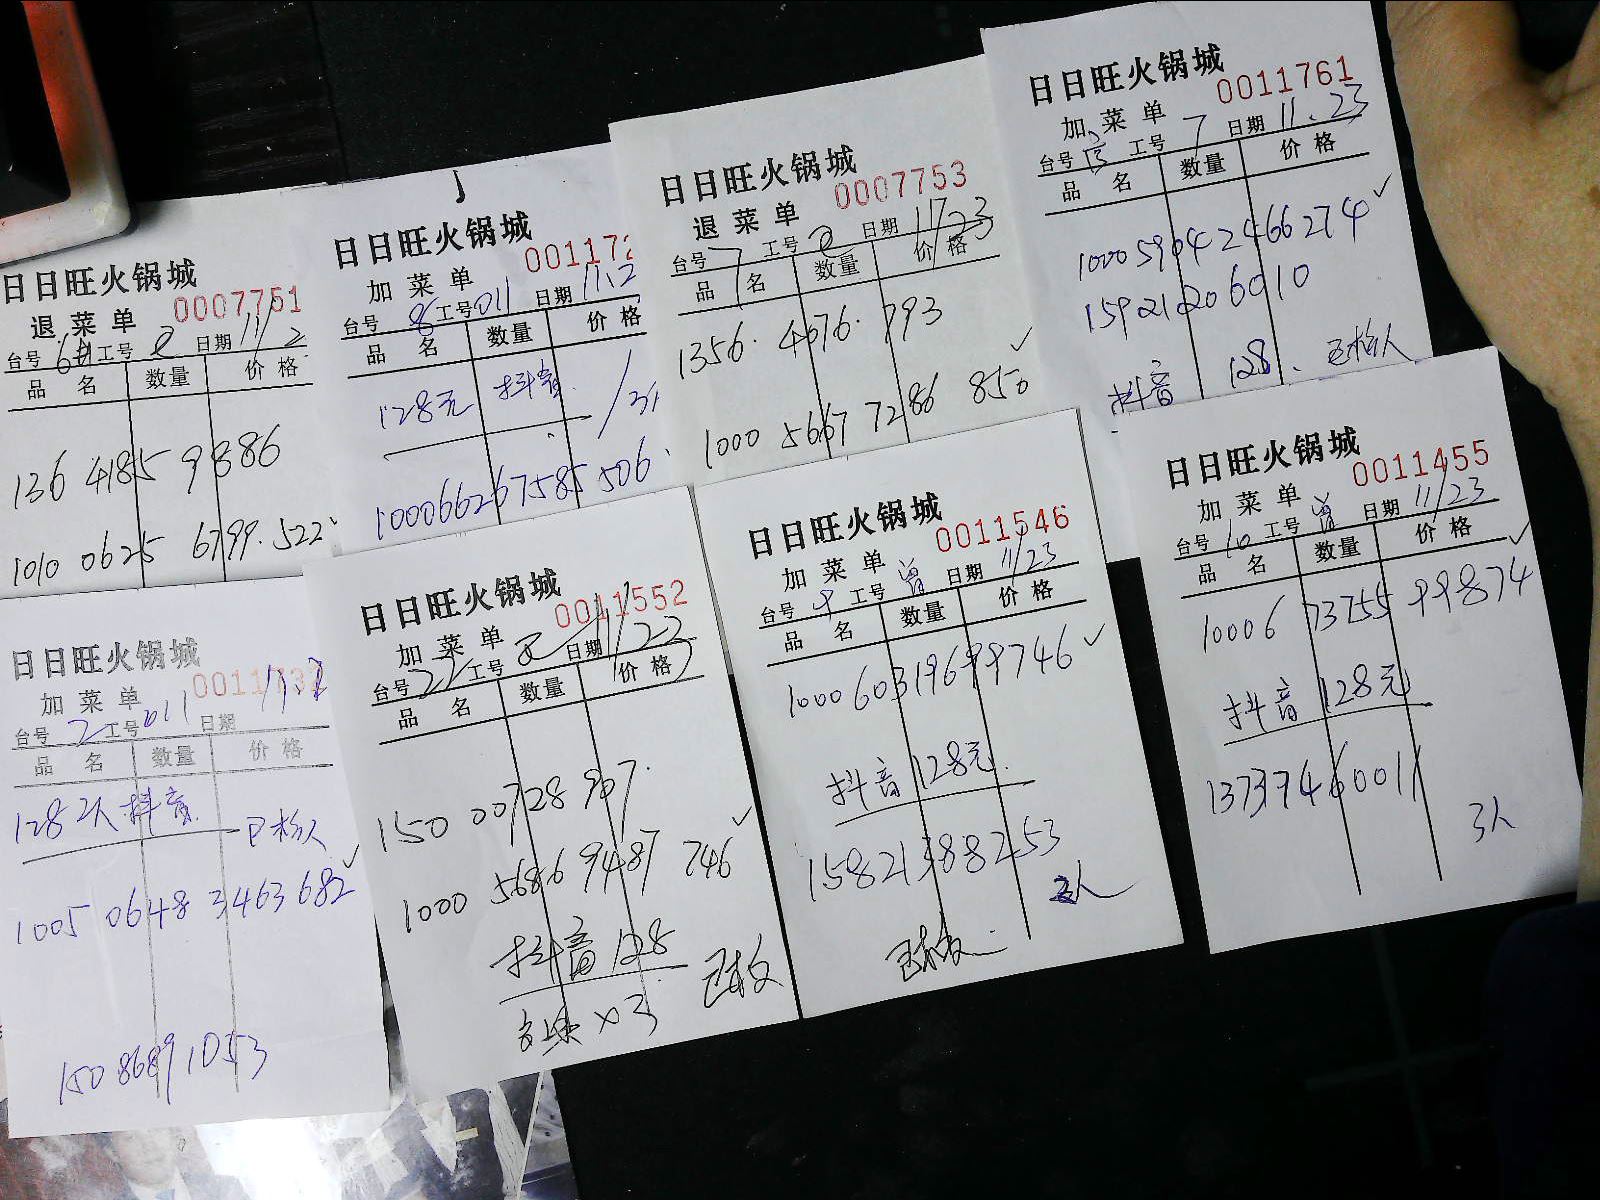 日日旺火锅城
0007751
退菜单
台号 工号 日期 11/2
品名 数量 价格
136 4185 9886
1010 0625 6799.522
日日旺火锅城
001172
加菜单
台号 8 工号 011 日期 11.2
品名 数量 价格
128元 抖音
100066267585506
日日旺火锅城
0007753
退菜单
台号 7 工号 日期 11/23
品名 数量 价格
1356.4676.793
1000 5667 7286 850
日日旺火锅城
0011761
加菜单
台号 工号 7 日期 11.23
品名 数量 价格
100059042466274
15921206010
抖音 128. 已核
日日旺火锅城
加菜单
台号 2 工号 011 日期
品名 数量 价格
128 2人 抖音
已核
1005 0648 3463682
150 8689 1053
日日旺火锅城
0011552
加菜单
台号 工号 日期 11/23
品名 数量 价格
150 00728 967
1000 5686 9487 746
抖音 128
x3 已核
日日旺火锅城
0011546
加菜单
台号 9 工号 曾 日期 11/23
品名 数量 价格
100060319699746
抖音 128元
15821388253
人
已核
日日旺火锅城
0011455
加菜单
台号 10 工号 曾 日期 11/23
品名 数量 价格
10006 73755 99874
抖音 128元
13737460011
3人